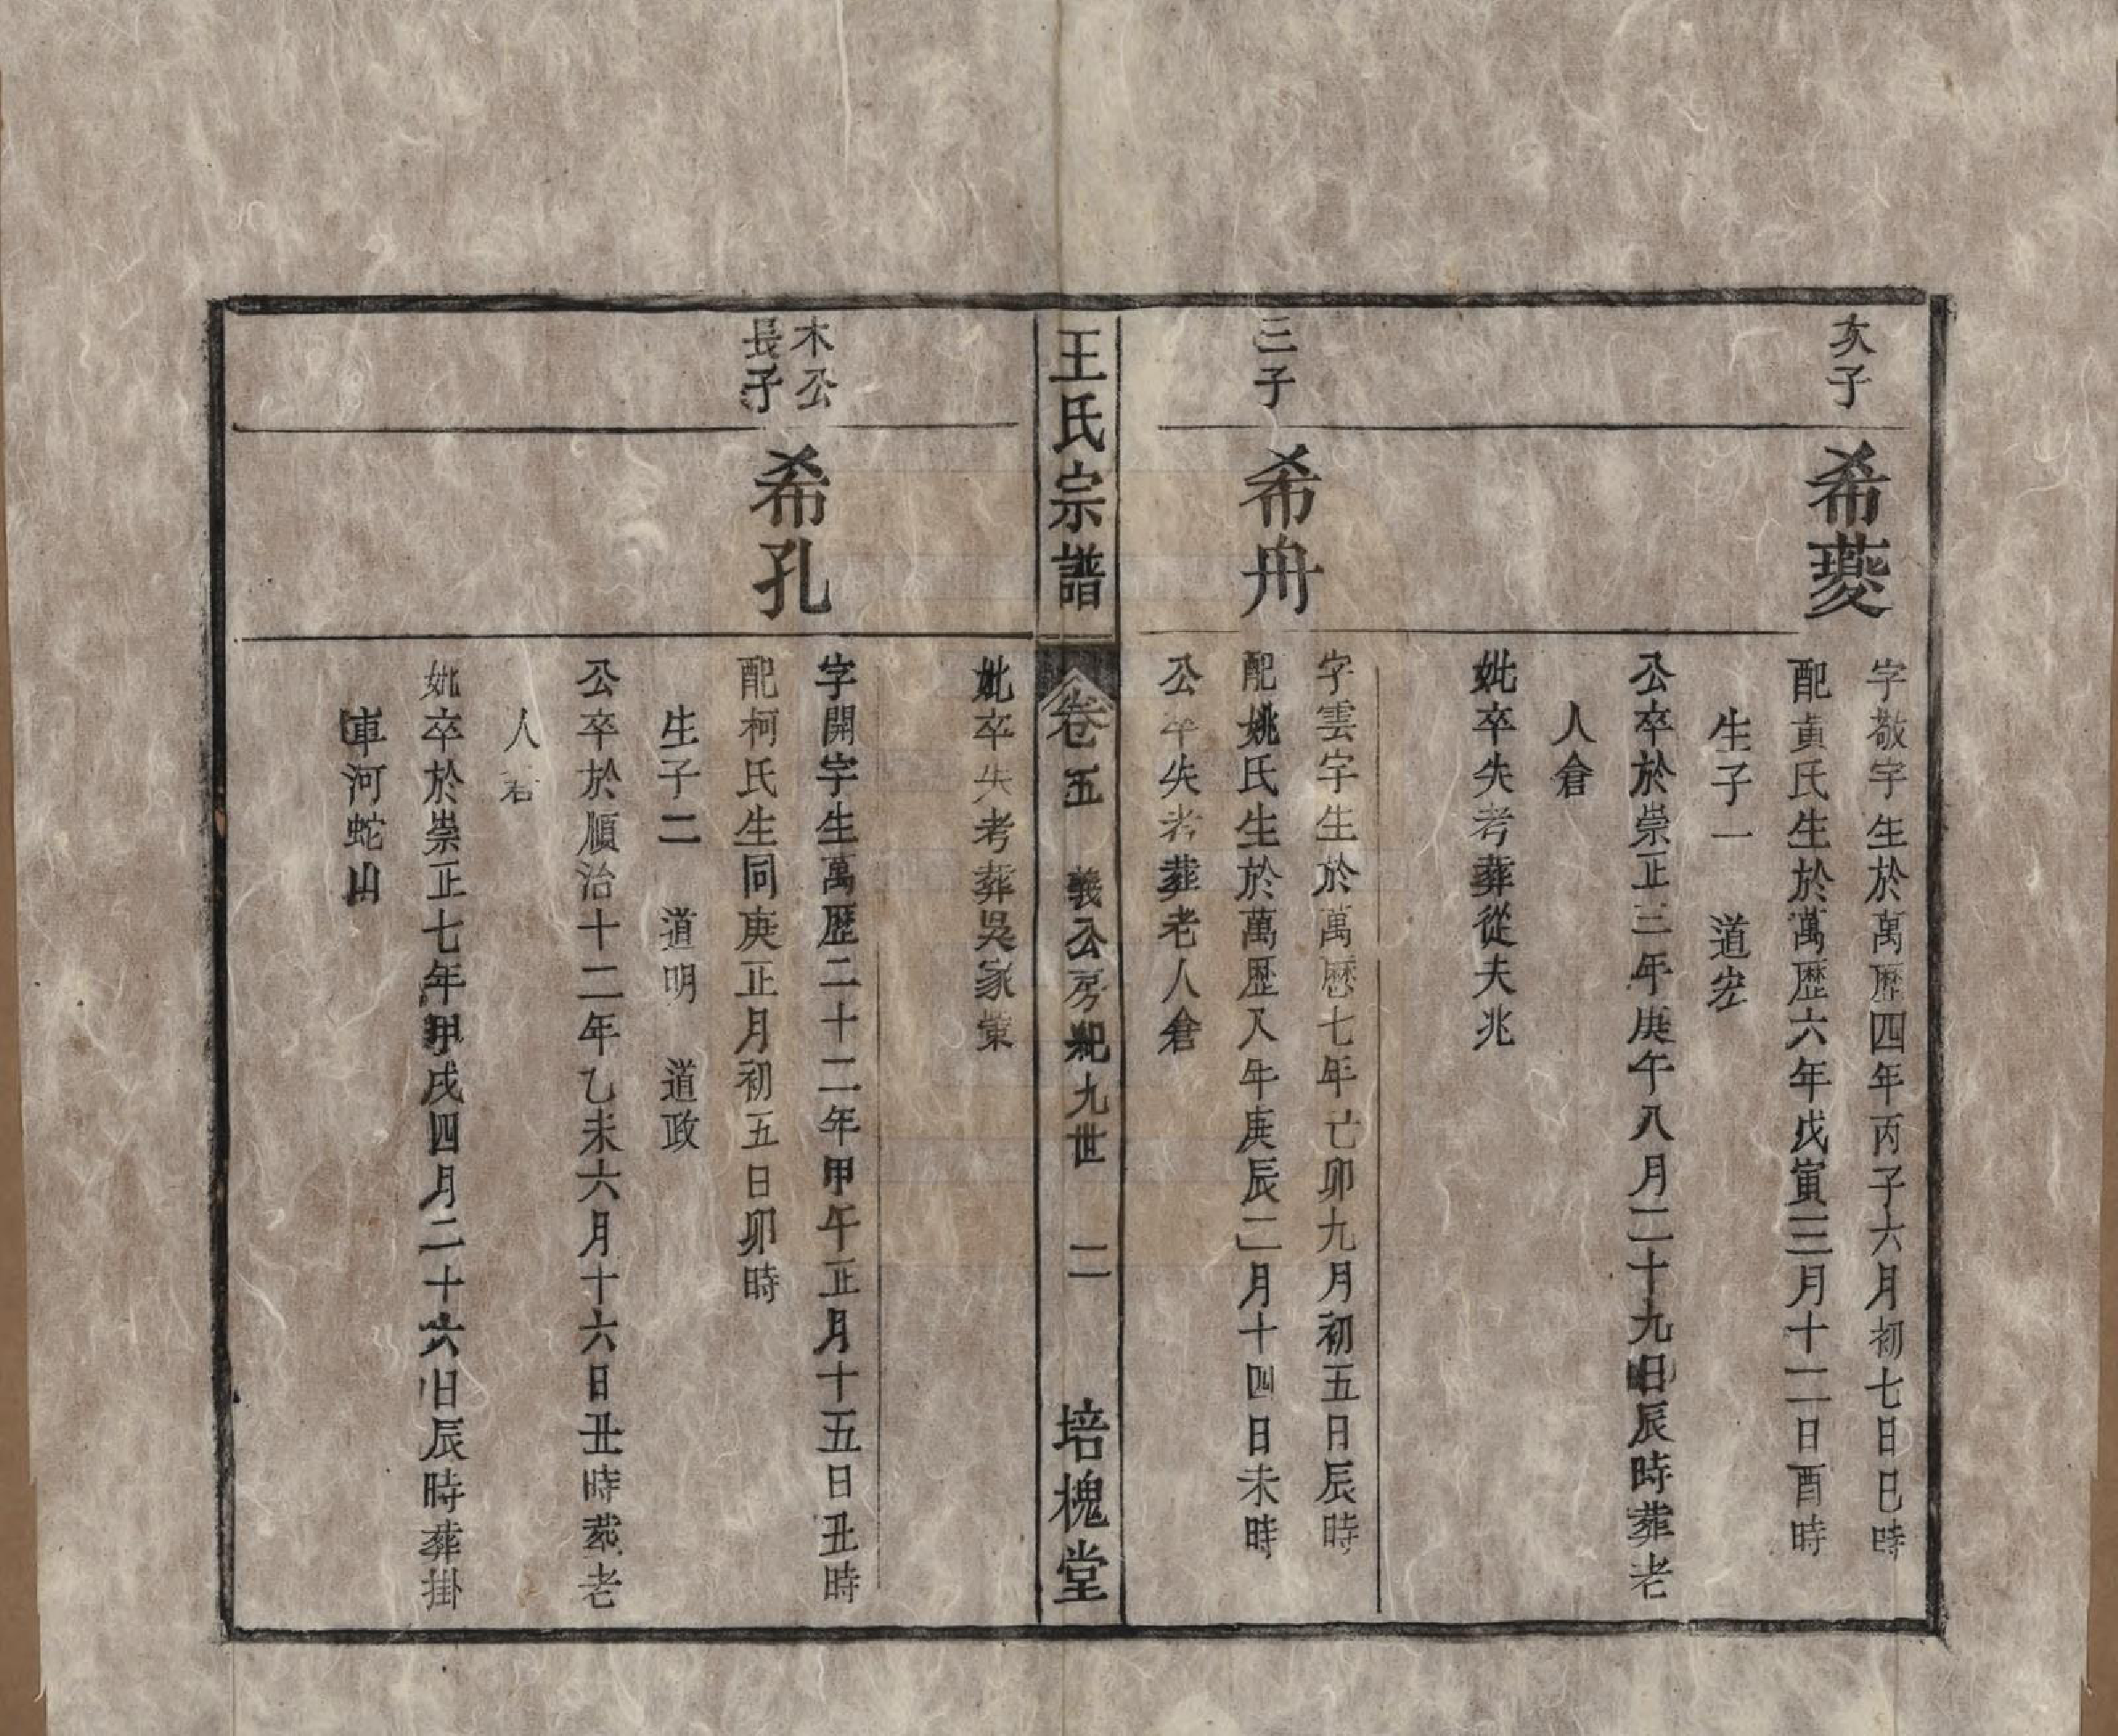 次子
希夔
字敬字生於萬歷四年丙子六月初七日巳時
配黃氏生於萬歷六年戊寅三月十二日酉時
生子一 道宏
公卒於崇正三年庚午八月二十九日辰時葬老
人倉
妣卒失考葬從夫兆
三子
希舟
字雲字生於萬歷七年己卯九月初五日辰時
配姚氏生於萬歷八年庚辰二月十四日未時
公卒失考葬老人倉
王氏宗譜 卷五 義公房紀九世 二 培槐堂
妣卒失考葬吳家
木公
長子
希孔
字開字生萬歷二十二年甲午正月十五日丑時
配柯氏生同庚正月初五日卯時
生子二 道明 道政
公卒於順治十二年乙未六月十六日丑時葬老
人
妣卒於崇正七年甲戌四月二十六日辰時葬掛
車河蛇山